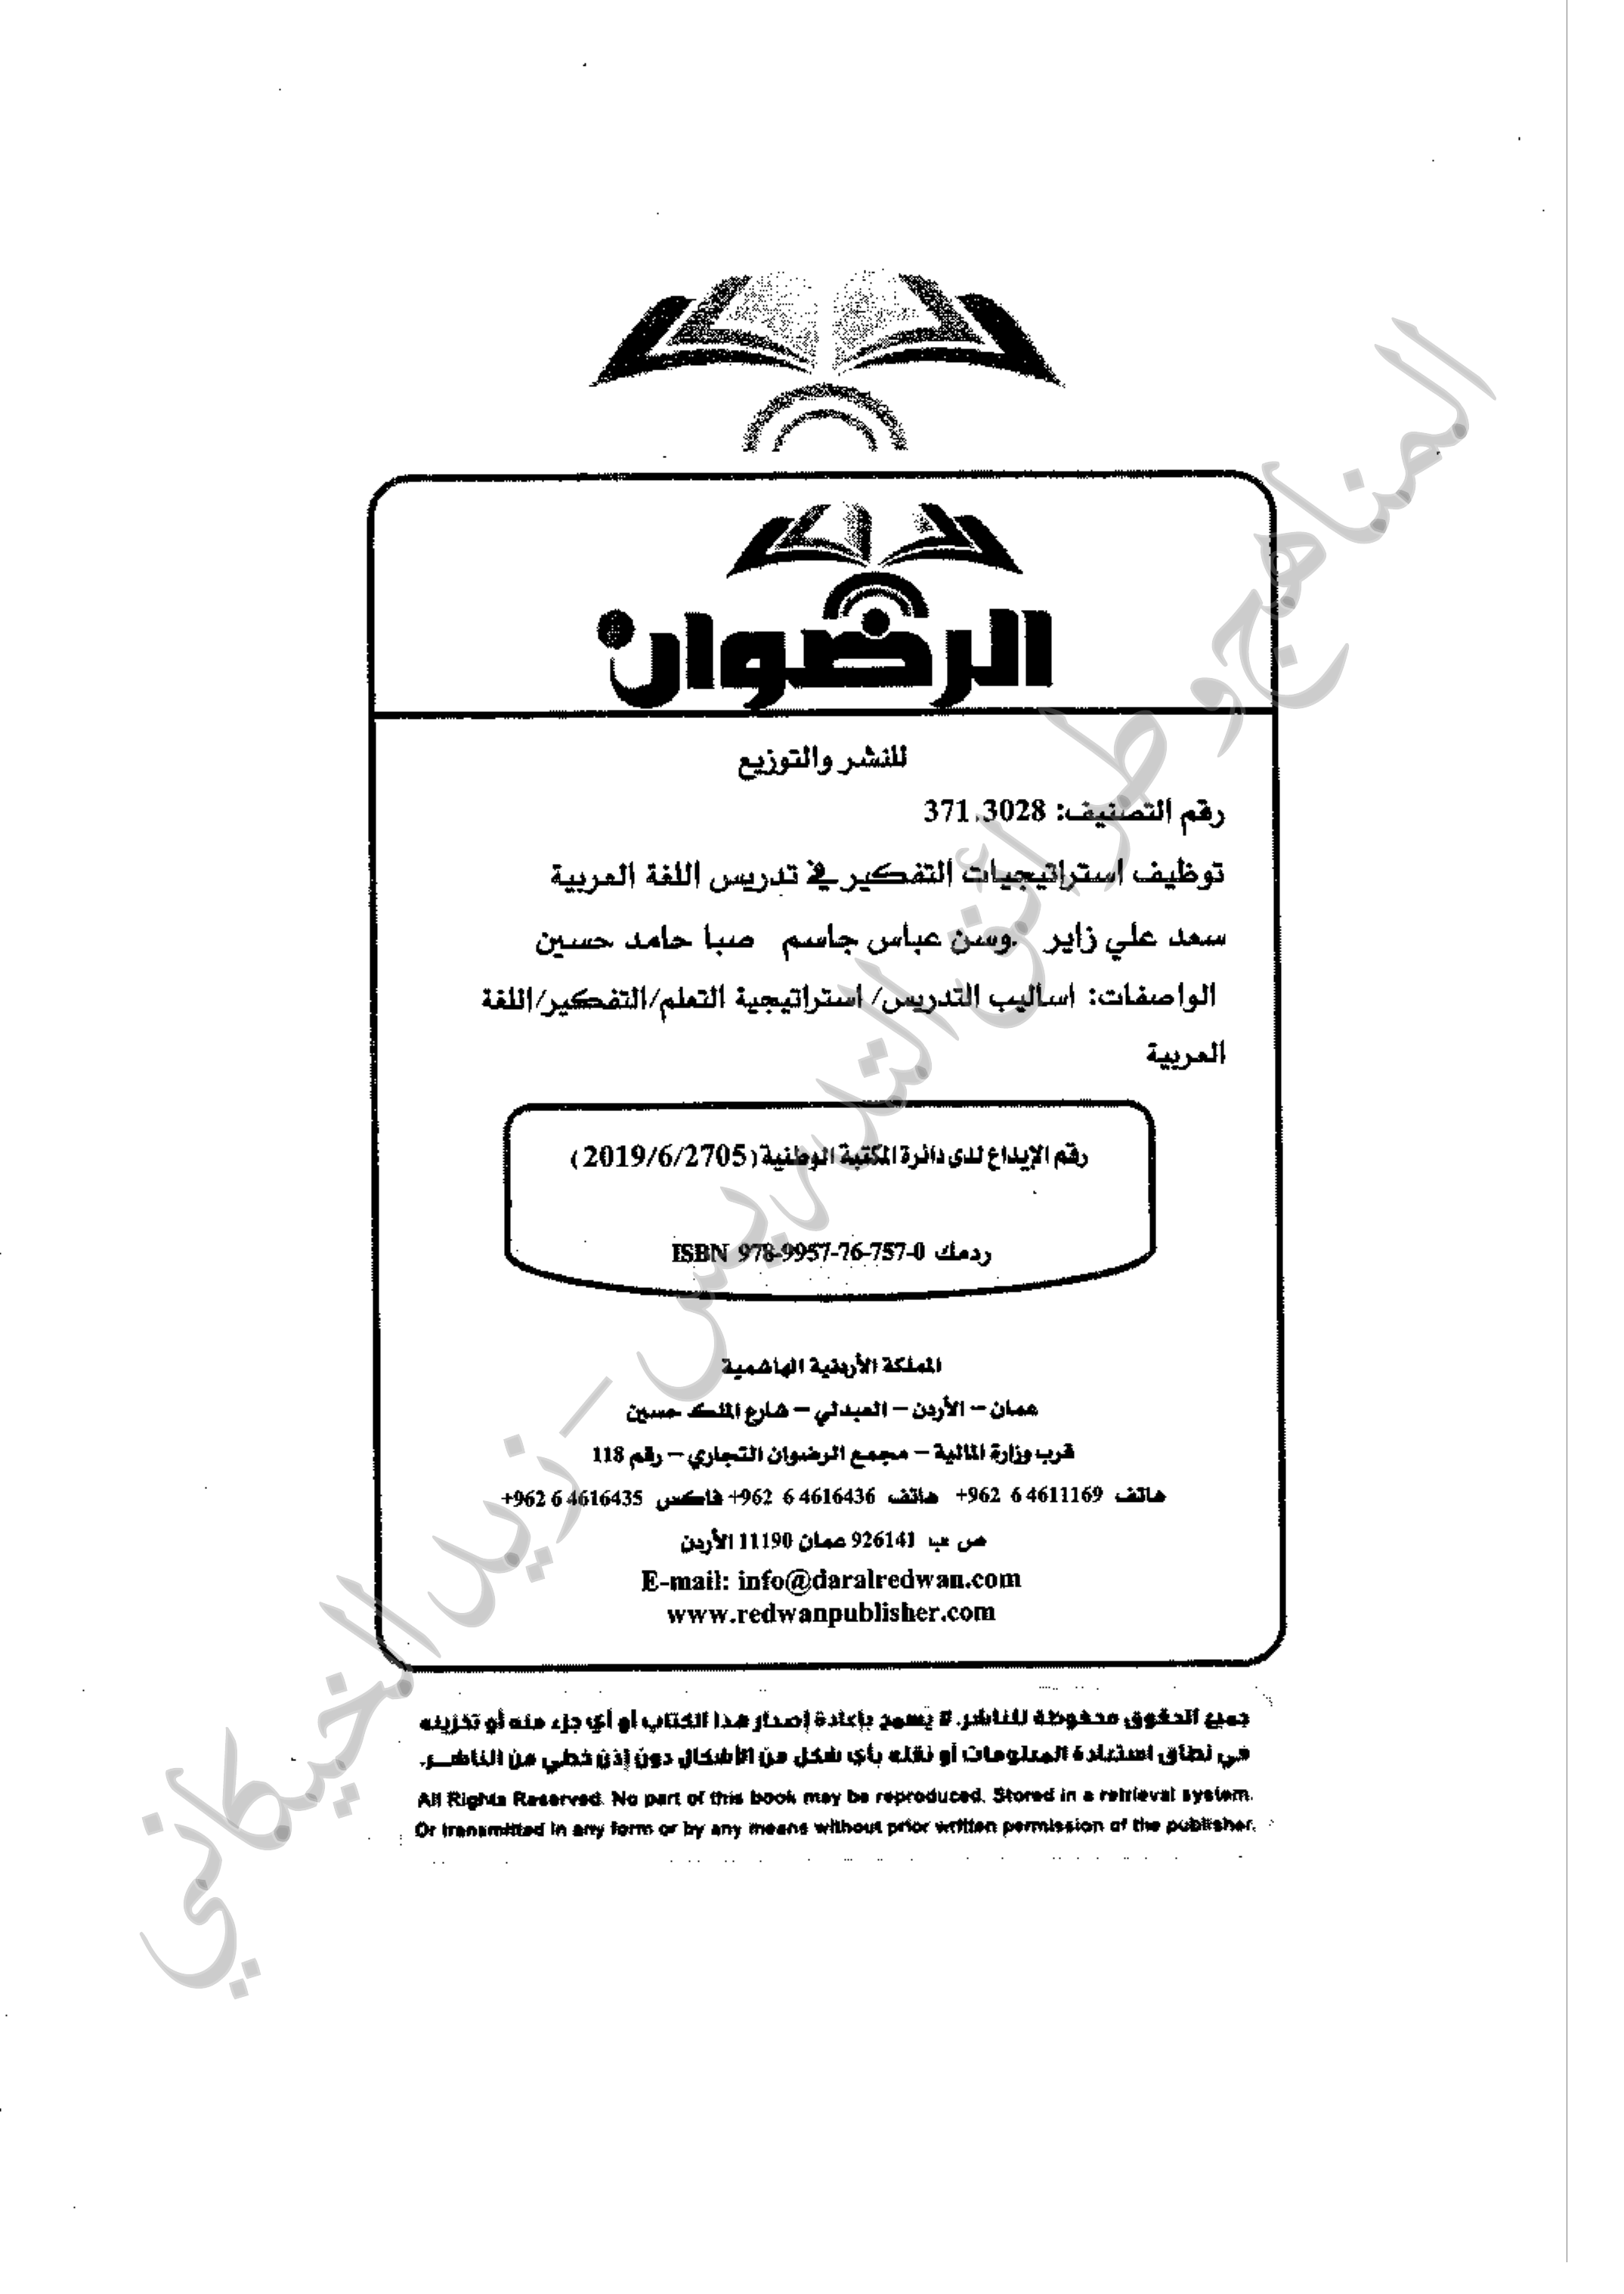 الرضوان
للنشر والتوزيع
رقم التصنيف: 371.3028
توظيف استراتيجيات التفكير في تدريس اللغة العربية
سعد علي زاير .وسن عباس جاسم صبا حامد حسين
الواصفات: اساليب التدريس/ استراتيجية التعلم/التفكير/اللغة
العربية
رقم الإيداع لدى دائرة المكتبة الوطنية (2019/6/2705)
ردمك ISBN 978-9957-76-757-0
المملكة الأردنية الهاشمية
عمان – الأردن – العبدلي – شارع الملك حسين
قرب وزارة المالية – مجمع الرضوان التجاري – رقم 118
هاتف 4611169 6 962+ هاتف 4616436 6 962+ فاكس 4616435 6 962+
ص ب 926141 عمان 11190 الأردن
E-mail: info@daralredwan.com
www.redwanpublisher.com
جميع الحقوق محفوظة للناشر. لا يسمح بإعادة إصدار هذا الكتاب أو أي جزء منه أو تخزينه
في نطاق استعادة المعلومات أو نقله بأي شكل من الأشكال دون إذن خطي من الناشـر.
All Rights Reserved. No part of this book may be reproduced. Stored in a retrieval system.
Or transmitted in any form or by any means without prior written permission of the publisher.
المناهج و طرائق التدريس - زيد الخيكاني